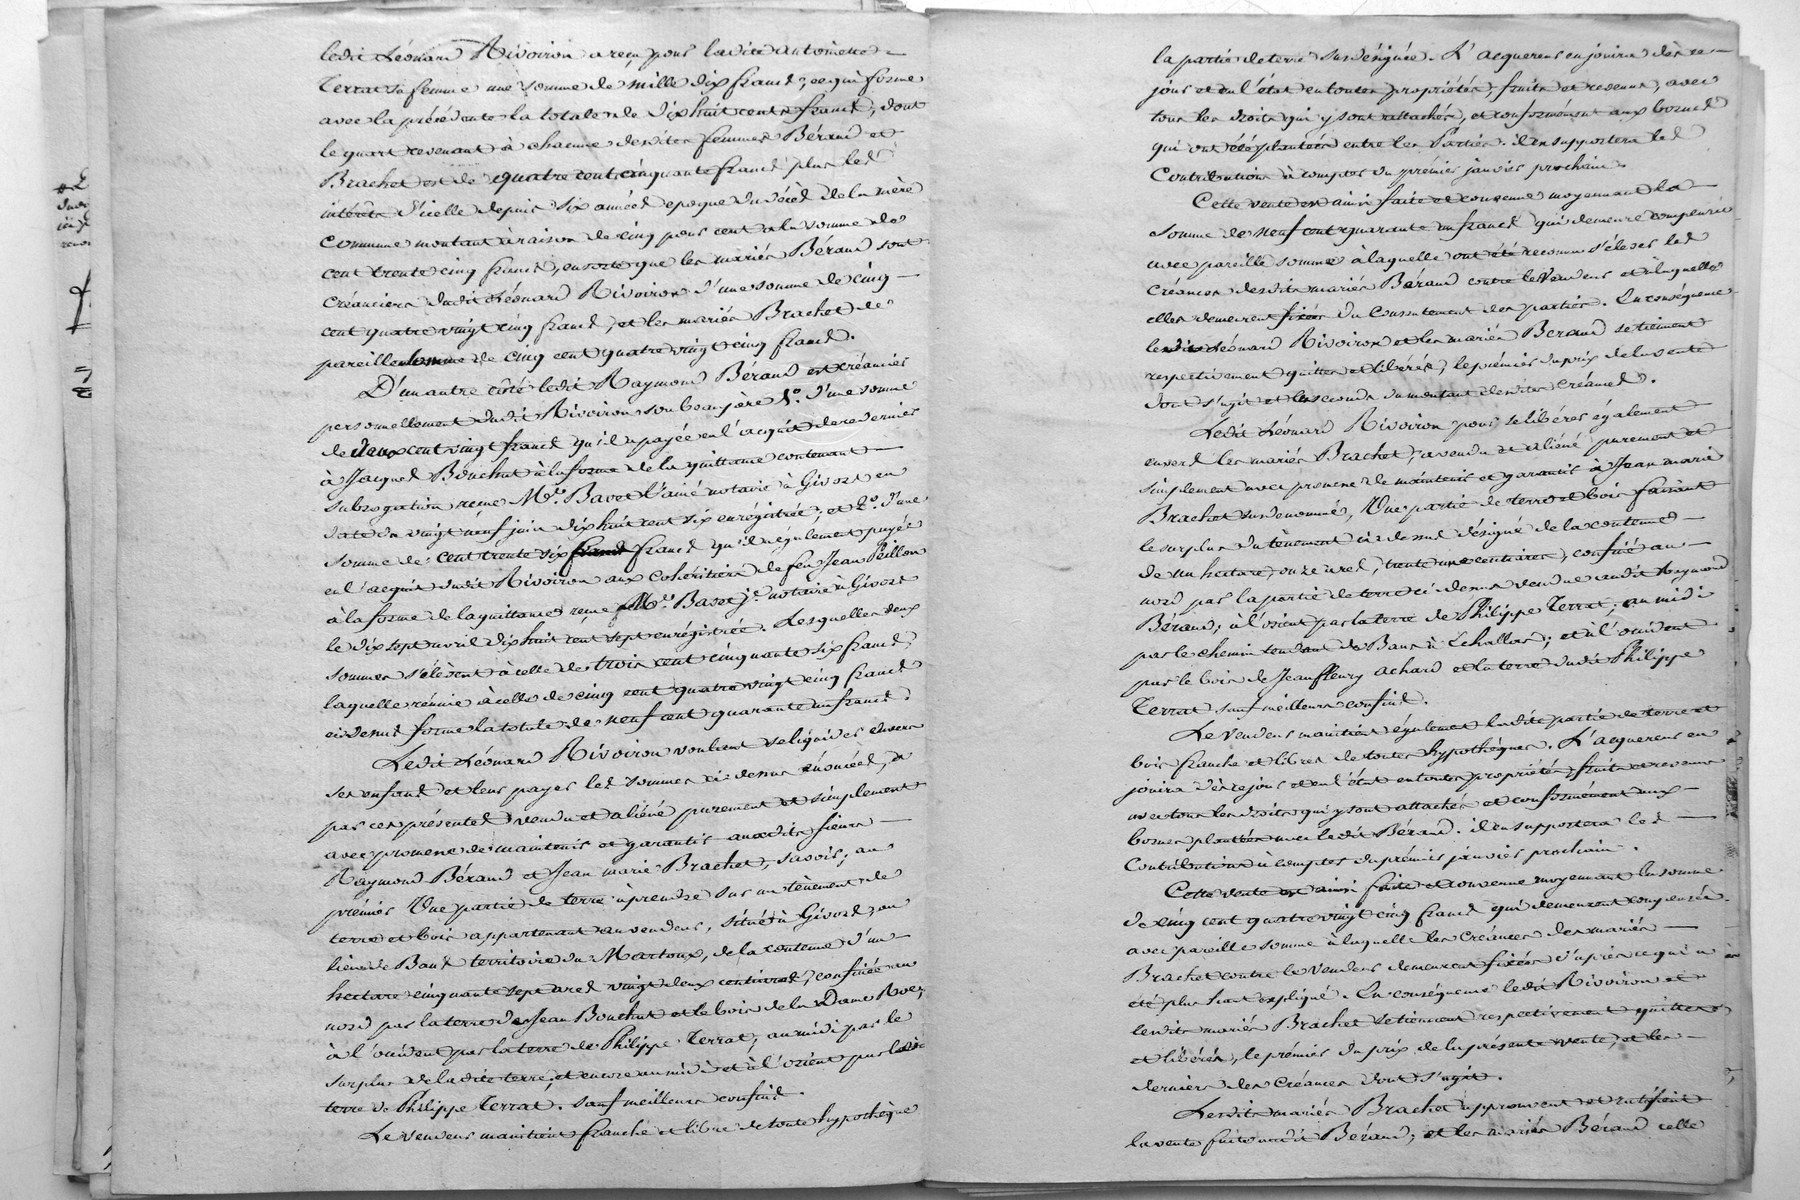 ledit Léonard Rivoiron a reçu pour ladite Antoinette
Terrat sa femme une somme de mille dix francs, ce qui forme
avec la précédente la totale de dix huit cents francs, dont
le quart revenant à chacune desdites femmes Béraud et
Brachet est de quatre cent cinquante francs plus les
intérêts d'icelle depuis six années epoque du décès de la mère
commune montant à raison de cinq pour cent à la somme de
cent trente cinq francs, ensorte que les mariés Béraud sont
créanciers dudit Léonard Rivoiron d'une somme de cinq
cent quatre vingt cinq francs, et les mariés Brachet de
pareille somme de cinq cent quatre vingt cinq francs.
D'un autre côté ledit Raymond Béraud est créancier
personnellement dudit Rivoiron son beaupère 1.° d'une somme
de deux cent vingt francs qu'il a payée en l'acquit de ce dernier
à Jacques Bouchut à la forme de la quittance contenant
subrogation reçue M.e Bavet l'ainé notaire à Givors en
date du vingt neuf juin dix huit cent six enrégistrée; et 2.° d'une
somme de cent trente six francs qu'il a également payée
en l'acquit dudit Rivoiron aux cohéritiers de feu Jean Peillon
à la forme de la quittance reçue M.e Bavet j.e notaire à Givors
le dix sept avril dix huit cent sept enrégistrée. Lesquelles deux
sommes s'élèvent à celle de trois cent cinquante six francs,
laquelle réunie à celle de cinq cent quatre vingt cinq francs
ci dessus forme la totale de neuf cent quarante un francs.
Ledit Léonard Rivoiron voulant se liquider envers
ses enfans et leur payer les sommes ci-dessus énoncées, a
par ces présentes vendu et aliéné purement et simplement
avec promesse de maintenir et garantir auxdits sieurs
Raymond Béraud et Jean marie Brachet, savoir; au
prémier Une partie de terre à prendre sur un tènement de
terre et bois appartenant au vendeur, situé à Givors, au
lieu de Bans territoire du Martoux, de la contenue d'un
hectare cinquante sept ares vingt deux centiares, confinée au
nord par la terre de Jean Bouchut et le bois de la Dame Roe,
à l'occident par la terre de Philippe Terrat, au midi par le
surplus de ladite terre, et encore au midi et à l'orient par la
terre de Philippe Terrat. sauf meilleurs confins.
Le vendeur maintient franche et libre de toute hypothèque
la partie de terre sus désignée. L'acquereur en jouira dès ce
jour et en l'état en toutes propriétés, fruits et revenus, avec
tous les droits qui y sont attachés, et conformément aux bornes
qui ont été plantées entre les Parties. il en supportera les
Contributions à compter du prémier janvier prochain.
Cette vente est ainsi faite et convenue moyennant la
somme de neuf cent quarante un francs qui demeure compensée
avec pareille somme à laquelle ont été reconnu s'élever les
créances desdits mariés Béraud contre le Vendeur et à laquelle
elles demeurent fixées du consentement des parties. En conséquence
lesdits Léonard Rivoiron et les mariés Béraud se tiennent
respectivement quittes et libérés, le prémier du prix de la vente
dont s'agit et les seconds du montant desdites créances.
Ledit Léonard Rivoiron pour se libérer également
envers les mariés Brachet, a vendu et aliéné purement et
simplement avec promesse de maintenir et garantir à Jean marie
Brachet susdenommé, Une partie de terre et bois faisant
le surplus du tenement ci-dessus désigné de la contenue
de un hectare, onze ares, trente une centiares, confiné au
nord par la partie de terre ci dessus vendue audit Raymond
Béraud; à l'orient par la terre de Philippe Terrat; au midi
par le chemin tendant de Bans à Echallas; et à l'occident
par le bois de Jean fleury achard et la terre dudit Philippe
Terrat sauf meilleurs confins.
Le vendeur maintient également ladite partie de terre et
bois franche et libres de toutes hypothèques. L'acquereur en
jouira dès ce jour et en l'état en toutes propriétés, fruits et revenus
avec tous les droits qui y sont attachés et conformément aux
bornes plantées avec ledit Béraud. il en supportera les
Contributions à compter du prémier janvier prochain.
Cette vente est ainsi faite et convenue moyennant la somme
de cinq cent quatre vingt cinq francs qui demeurent compensés
avec pareille somme à laquelle les Créances des mariés
Brachet contre le Vendeur demeurent fixées d'après ce qui a
été plus haut expliqué. En conséquence ledit Rivoiron et
lesdits mariés Brachet se tiennent respectivement quittes
et libérés, le prémier du prix de la présente vente, et les
derniers des Créances dont s'agit.
Lesdits mariés Brachet approuvent et ratifient
la vente faite audit Béraud, et les mariés Béraud celle